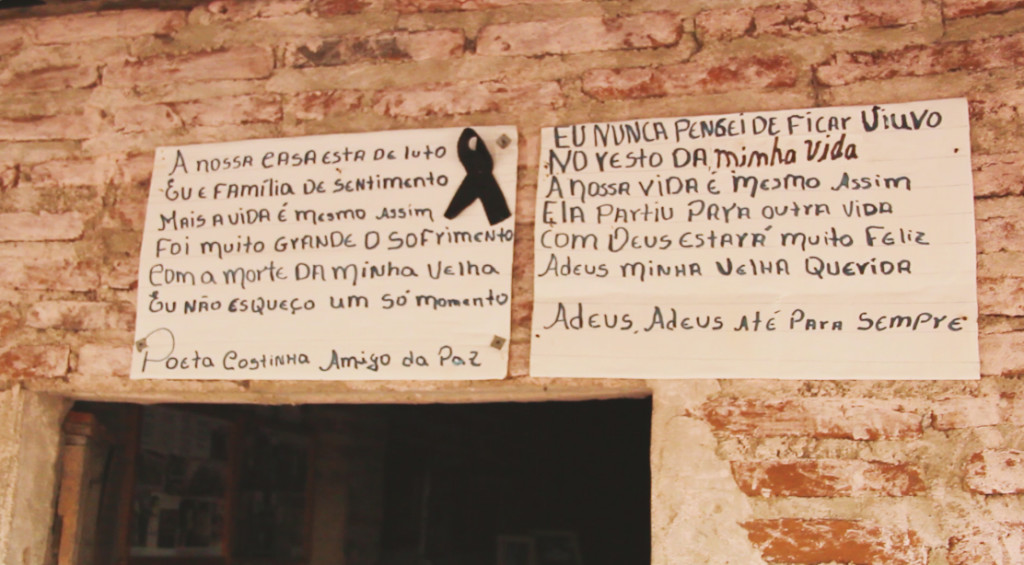 A nossa casa está de luto
Eu e família de sentimento
Mais a vida é mesmo assim
Foi muito grande o sofrimento
Com a morte da minha velha
Eu não esqueço um só momento
Poeta Costinha Amigo da Paz
Eu nunca pensei de ficar viuvo
No resto da minha vida
A nossa vida é mesmo assim
Ela partiu para outra vida
Com Deus estará muito feliz
Adeus minha velha querida
Adeus, Adeus até para sempre